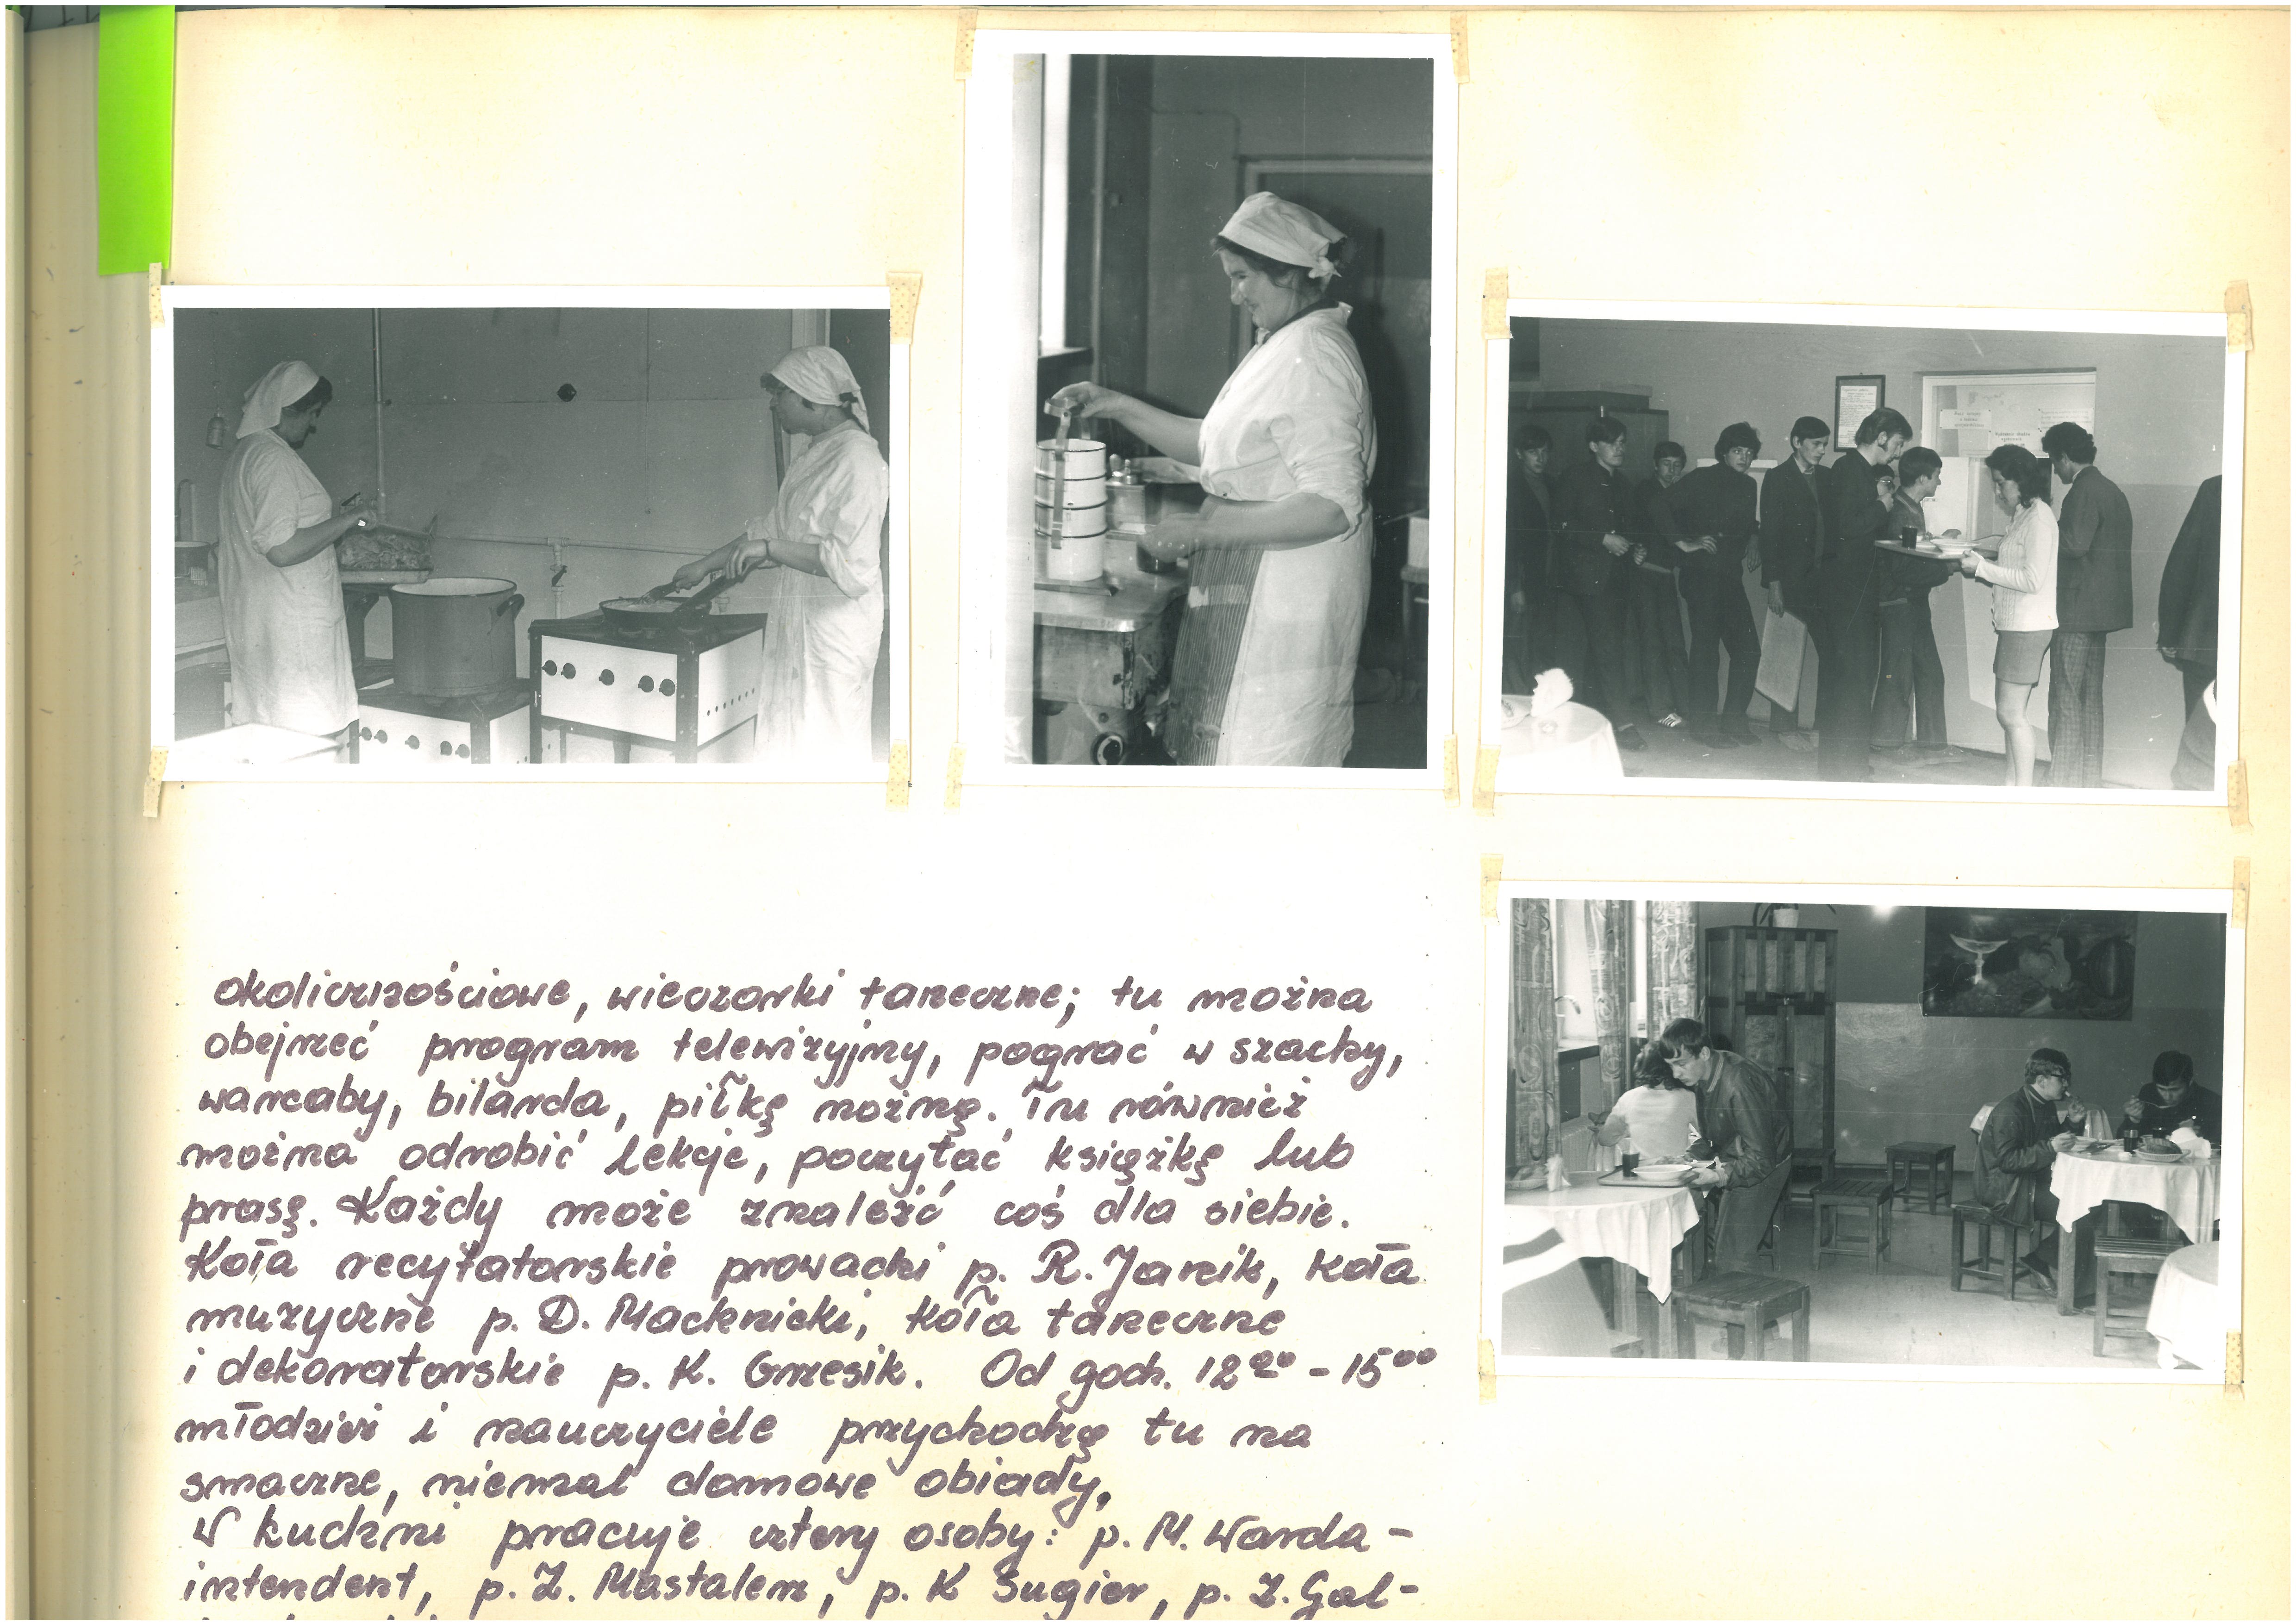 okolicznościowe, wieczorki taneczne; tu można
obejrzeć program telewizyjny, pograć w szachy,
warcaby, bilarda, piłkę nożną. Tu również
można odrobić lekcje, poczytać książkę lub
prasę. Każdy może znaleźć coś dla siebie.
Koła recytatorskie prowadzi p. R. Janik, koła
muzyczne p. D. Macknicki, koła taneczne
i dekoratorskie p. K. Grzesik. Od godz. 12⁰⁰ - 15⁰⁰
młodzież i nauczyciele przychodzą tu na
smaczne, niemal domowe obiady,
W kuchni pracuje cztery osoby: p. M. Warda -
intendent, p. Z. Mastalerz, p. K Sugier, p. Z. Gal-